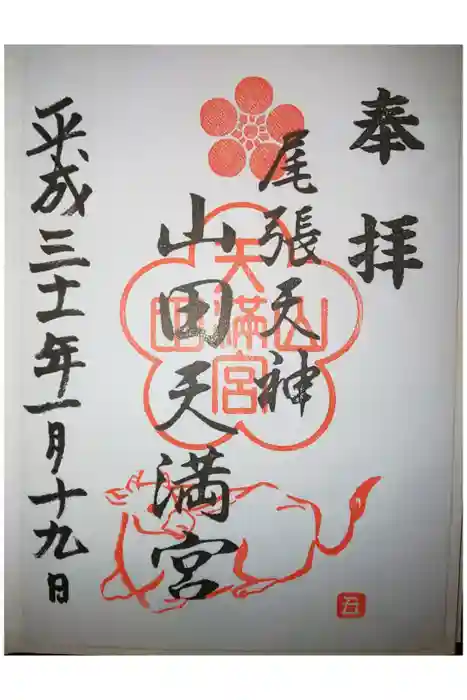 奉拝
尾張天神
山田天満宮
平成三十一年一月十九日
天満宮
山
田